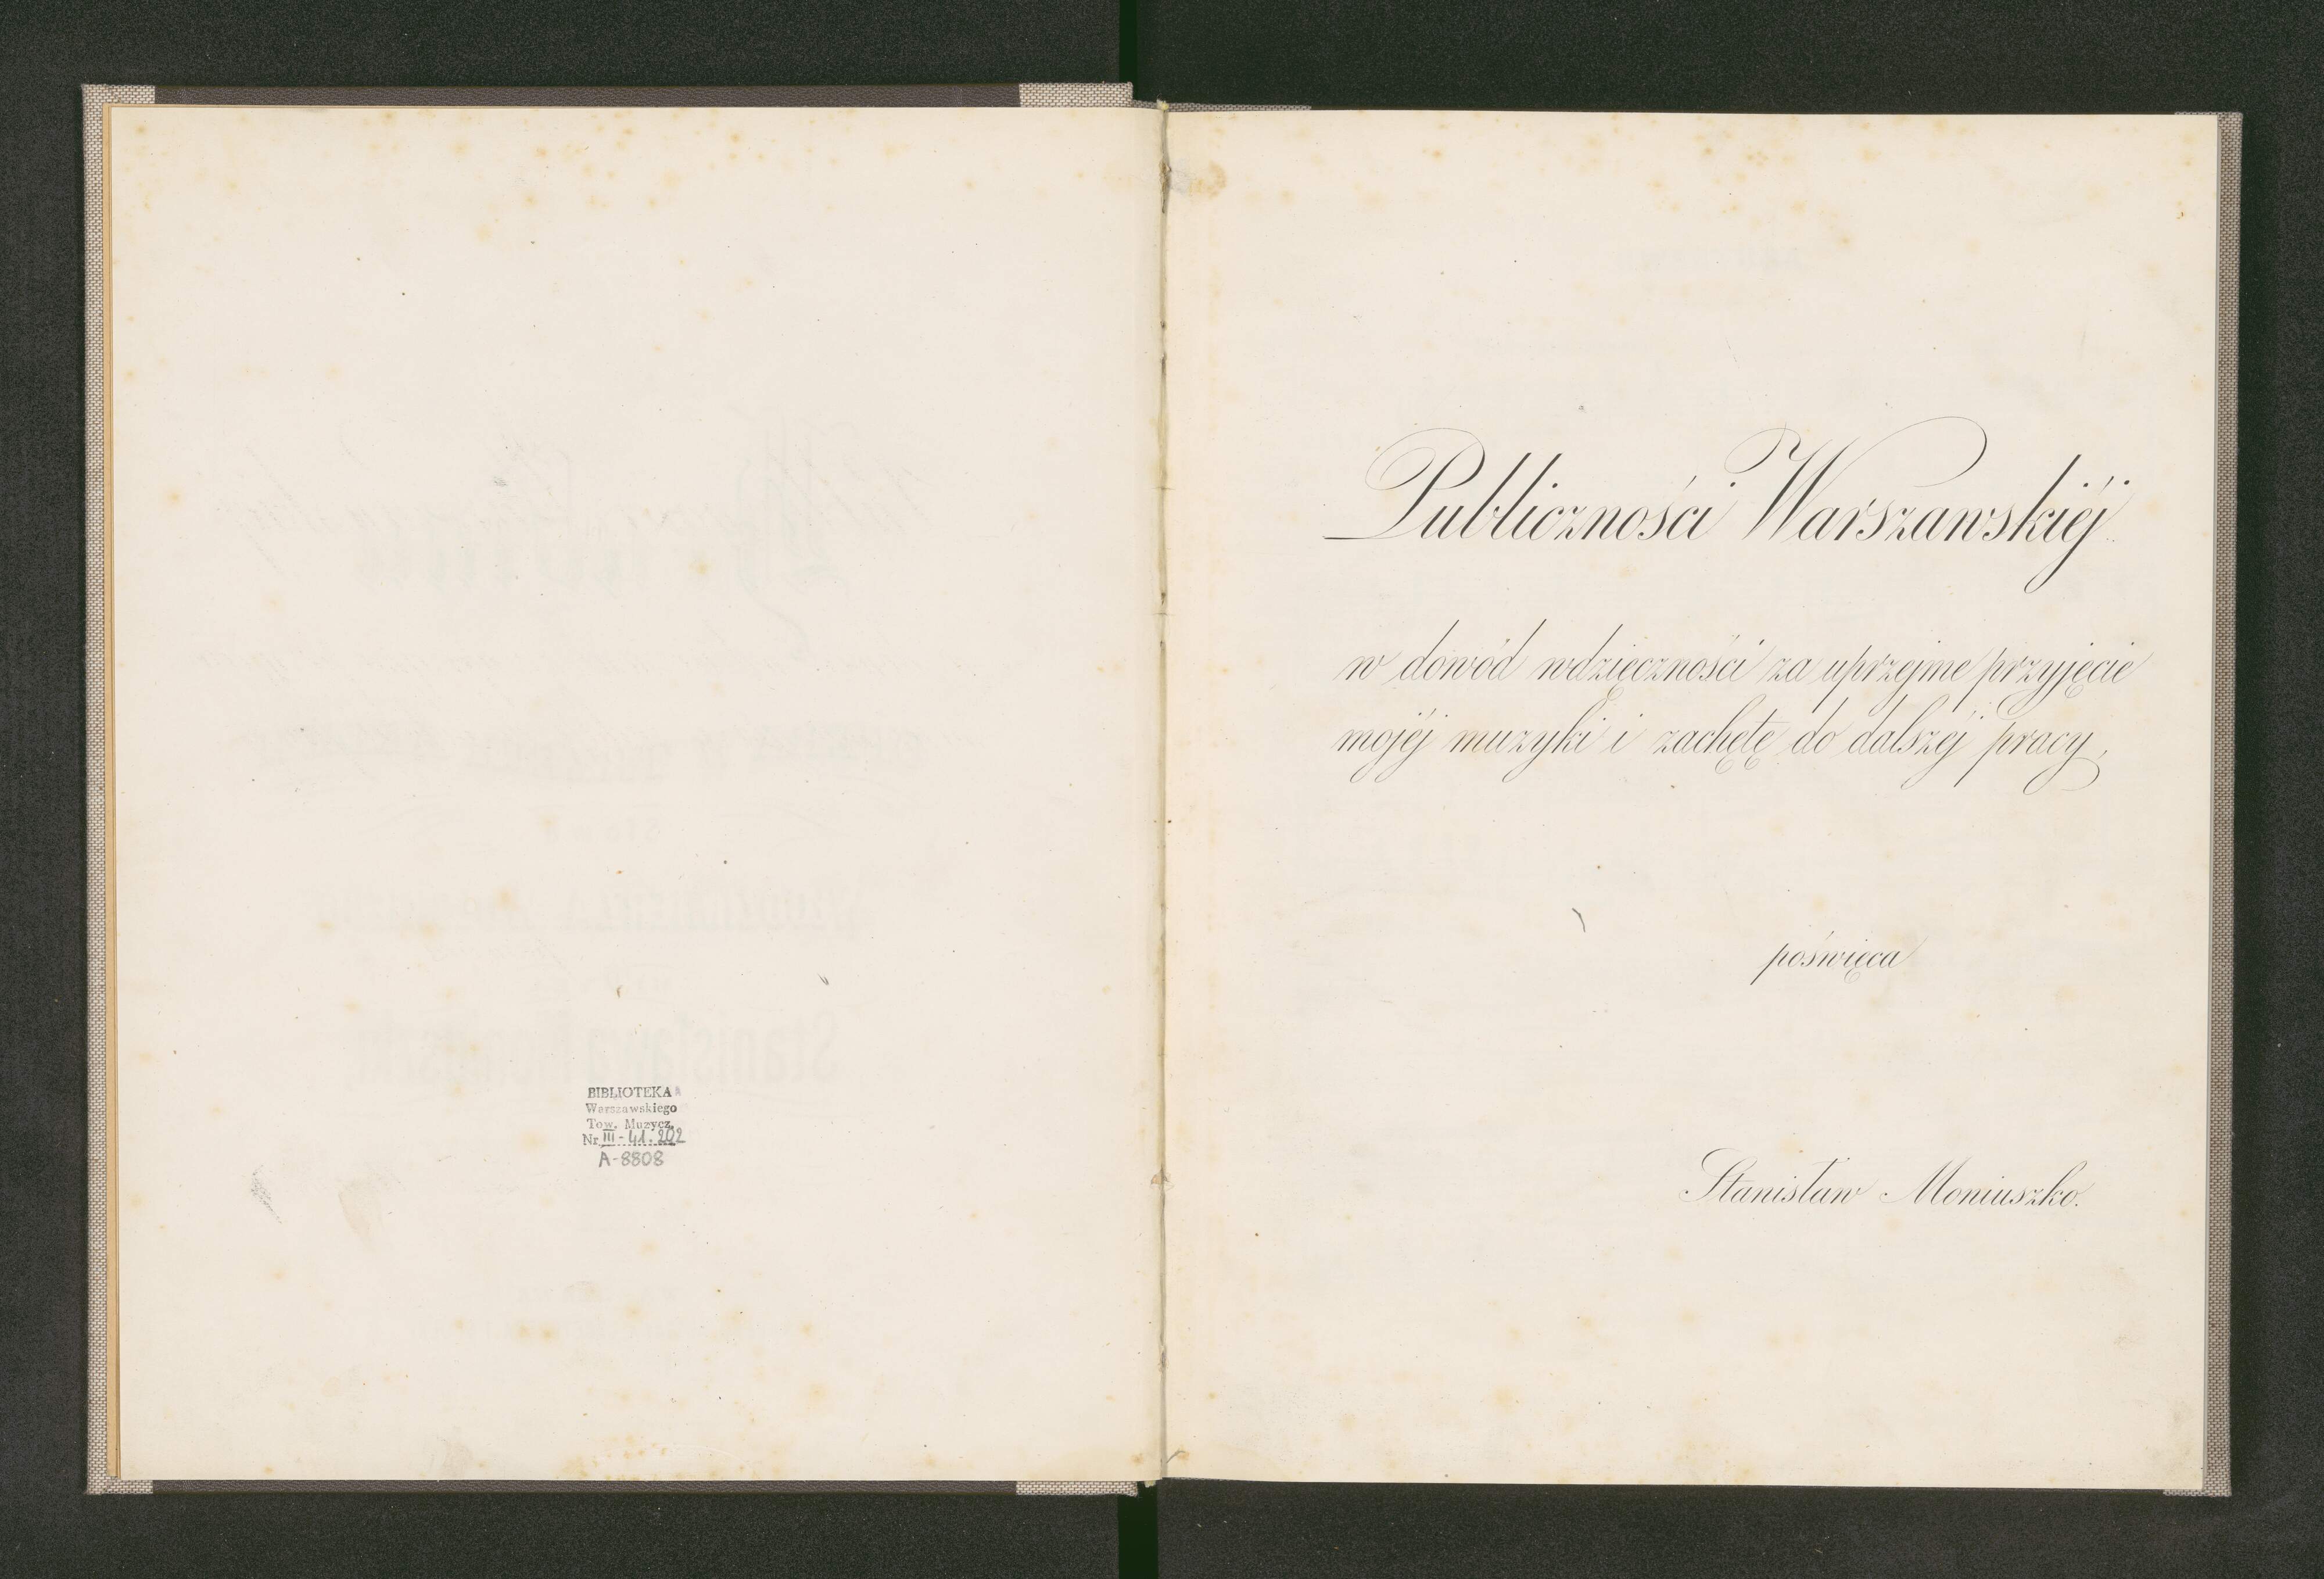 BIBLIOTEKA
Warszawskiego
Tow. Muzycz.
Nr. III - 41.202
A-8808
Publiczności Warszawskiéj
w dowód wdzięczności za uprzejme przyjęcie
mojéj muzyki i zachętę do dalszéj pracy,
poświęca
Stanisław Moniuszko.